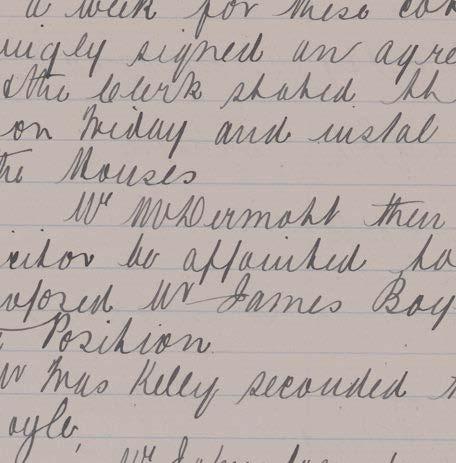 a week for these co
ingly signed an agre
& the Clerk stated th
on Friday and instal
the Houses
Mr McDermott then
icitor be appointed to
oposed Mr James Boy
Position
Mr Thas Kelly seconded
oyle,
Mr John